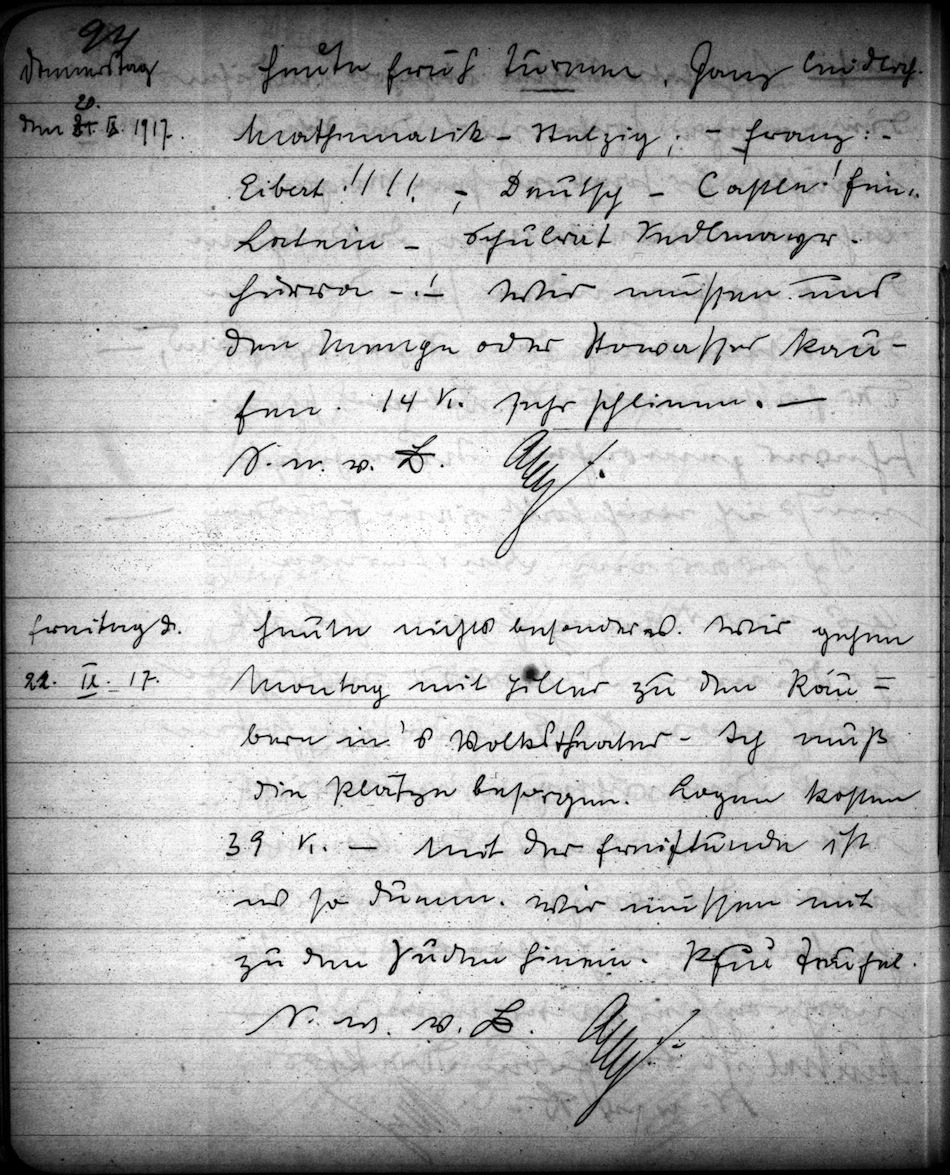 94
Donnerstag
den 20. IX. 1917.
Heute früh turnen. Ganz
Mathematik – Stelzig; – Franz: –
Eibert!!!! –, Deutsch – Caspar! fein.
Latein – Schulrat Sedlmayr.
Hurra –! Wir müssen uns
den Menge oder Stowasser kau-
fen. 14 K. sehr schlimm. —
N. w. v. B.
Freitag d.
21. IX. 17.
Heute nichts besonderes. Wir gehen
Montag mit Hiller zu den Räu=
bern in's Volkstheater – Ich muß
die Plätze besorgen. Logen kosten
39 K. — Mit der Freistunde ist
es so dumm. Wir müssen mit
zu den Juden hinein. Pfui Teufel.
N. w. v. B.